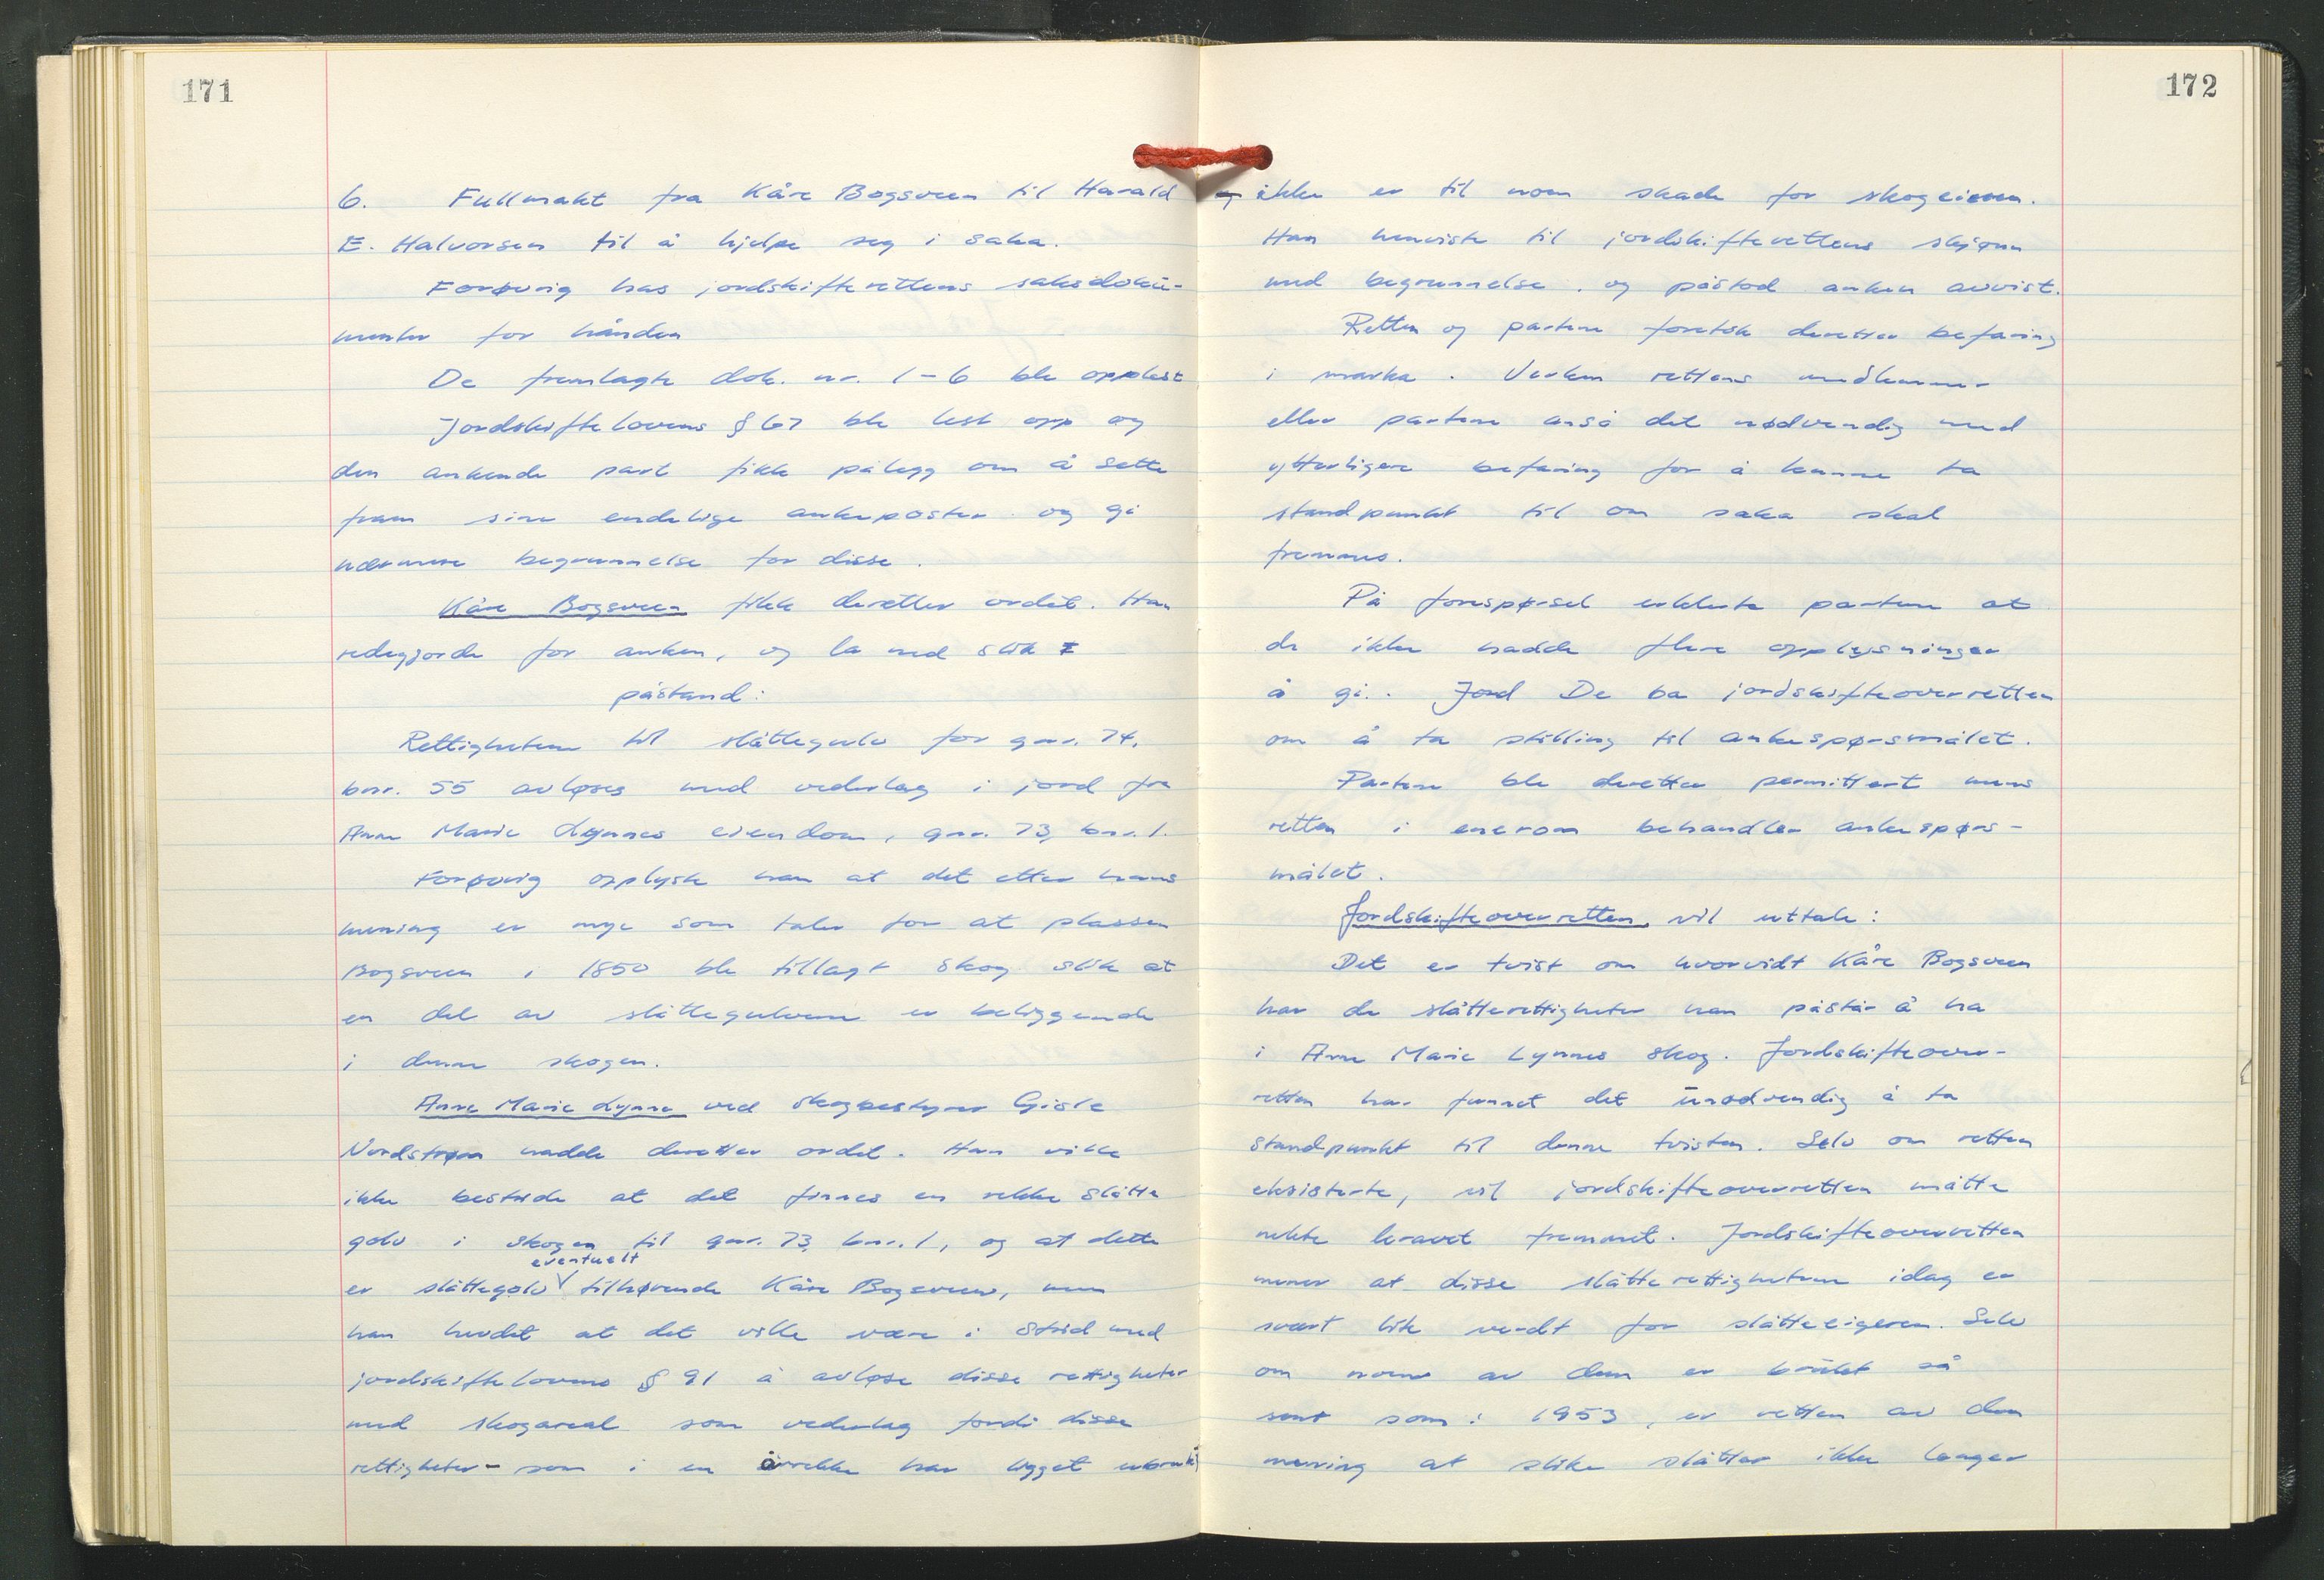 171
6. Fullmakt fra Kåre Bogsveen til Harald
E. Halvorsen til å hjelpe seg i saka.
Forøvrig has jordskifterettens saksdoku-
menter for hånden
De fremlagte dok. nr. 1-6 ble opplest
Jordskiftelovens § 67 ble lest opp og
den ankende part fikk pålegg om å sette
fram sine endelige ankeposter og gi
nærmere begrunnelse for disse.
Kåre Bogsveen fikk deretter ordet. Han
redegjorde for anken, og la ned slik
påstand:
Rettighetene til slåttegulv for gnr. 74,
bnr. 55 avløses med vederlag i jord fra
Anne Marie Lynnes eiendom, gnr. 73, bnr. 1.
Forøvrig opplyste han at det etter hans
mening er mye som taler for at plassen
Bogsveen i 1850 ble tillagt skog slik at
en del av slåttegulvene er beliggende
i denne skogen.
Anne Marie Lynne ved skogbestyrer Gisle
Nordstrøm hadde deretter ordet. Han ville
ikke bestride at det finnes en rekke slåtte
golv i skogen til gnr. 73, bnr. 1, og at dette
eventuelt
er slåttegolv tilhørende Kåre Bogsveen, men
han hevdet at det ville være i strid med
jordskiftelovens § 91 å avløse disse rettigheter
med skogareal som vederlag fordi disse
rettigheter - som i en årrekke har ligget ubrukt
172
og ikke er til noen skade for skogeieren.
Han henviste til jordskifterettens skjønn
med begrunnelse. og påstod anken avvist.
Retten og partene foretok deretter befaring
i marka. Verken rettens medlemmer
eller partene anså det nødvendig med
ytterligere befaring for å kunne ta
standpunkt til om saka skal
fremmes.
På forespørsel erklærte partene at
de ikke hadde flere opplysninger
å gi. Jord De ba jordskifteoverretten
om å ta stilling til ankespørsmålet.
Partene ble deretter permittert mens
retten i enerom behandler ankespørs-
målet.
Jordskifteoverretten vil uttale:
Det er tvist om hvorvidt Kåre Bogsveen
har de slåtterettigheter han påstår å ha
i Anne Marie Lynnes skog. Jordskifteover-
retten har funnet det unødvendig å ta
standpunkt til denne tvisten. Selv om retten
eksisterte, vil jordskifteoverretten måtte
nekte kravet fremmet. Jordskifteoverretten
mener at disse slåtterettighetene idag er
svært lite verdt for slåtteeigeren. Selv
om noen av dem er brukt så
sent som i 1953, er retten av den
mening at slike slåtter ikke lenger